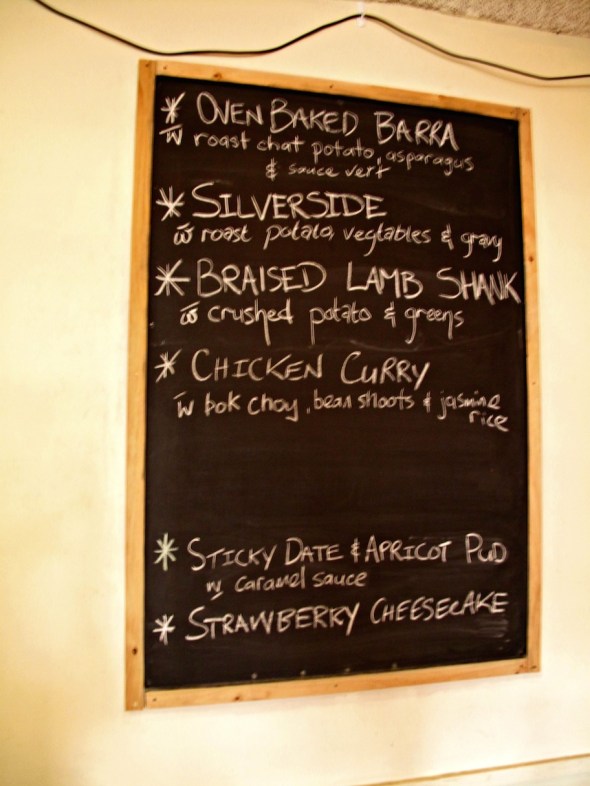 * OVEN BAKED BARRA
w roast chat potato, asparagus
& sauce vert
* SILVERSIDE
w roast potato, vegtables & gravy
* BRAISED LAMB SHANK
w crushed potato & greens
* CHICKEN CURRY
w bok choy, bean shoots & jasmine
rice
* STICKY DATE & APRICOT PUD
w caramel sauce
* STRAWBERRY CHEESECAKE